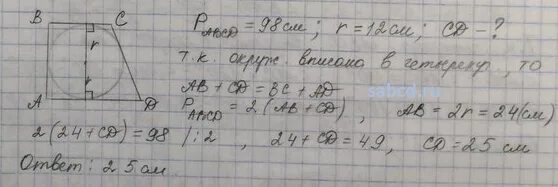 B C
r
r
A D
P_ABCD = 98 см ; r = 12 см ; CD – ?
т.к. окруж. вписана в четырехуг, то
AB + CD = BC + AD
sabcd.ru
P_ABCD = 2 (AB + CD) , AB = 2r = 24 (см)
2 (24 + CD) = 98 /: 2 , 24 + CD = 49 , CD = 25 см
Ответ : 25 см.